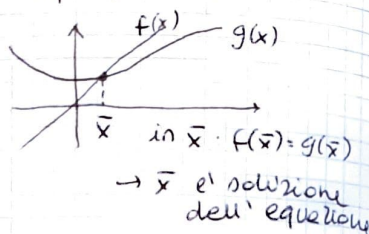 f(x)
g(x)
x̄ in x̄ · f(x̄) = g(x̄)
→ x̄ e' soluzione
dell' equazione